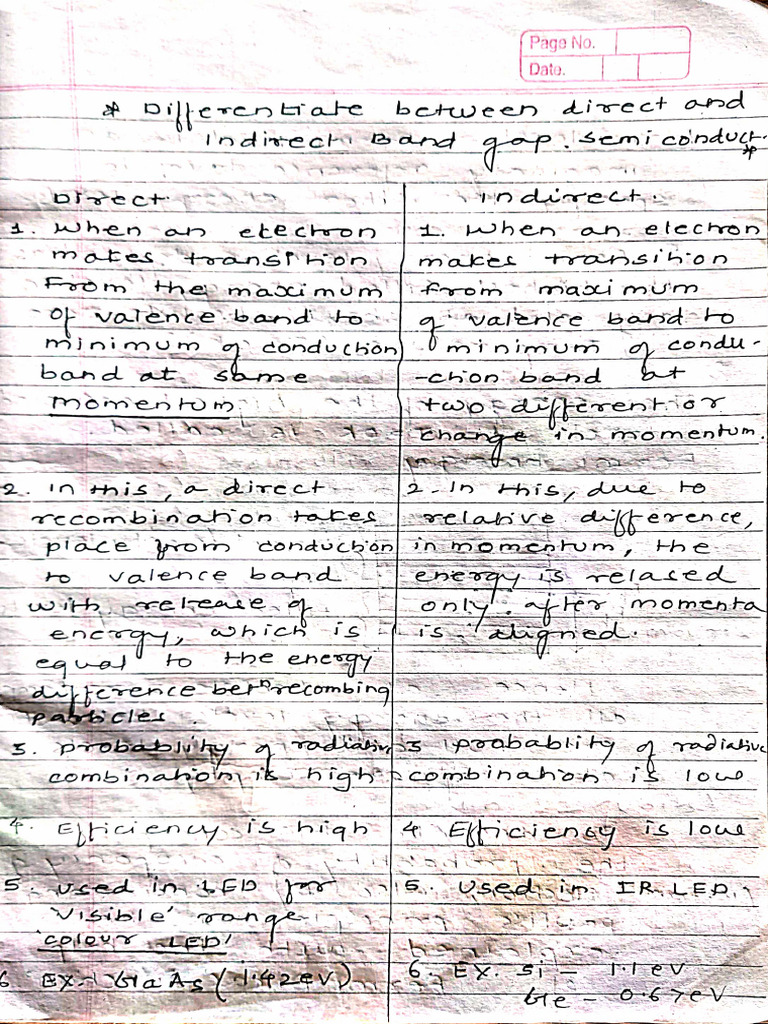 Page No.
Date.
* Differentiate between direct and
Indirect Band gap. semiconduct. *
Direct
1. When an electron
makes transition
From the maximum
of valence band to
minimum of conduction
band at same
momentum
2. In this, a direct
recombination takes
place from conduction
to valence band
with release of
energy, which is
equal to the energy
difference betn recombing
particles.
3. probablity of radiative
combination is high
4. Efficiency is high
5. used in LED for
'visible' range
'colour LED'
6 Ex. GaAs (1.42eV)
indirect.
1. When an electron
makes transition
from maximum
of valence band to
minimum of condu-
-ction band at
two different or
change in momentum.
2. In this, due to
relative difference,
in momentum, the
energy is relased
only. after momenta
is aligned.
3 probablity of radiative
combination is low
4 Efficiency is low
5. used in IR LED.
6. Ex. Si - 1.1 eV
Ge - 0.67eV